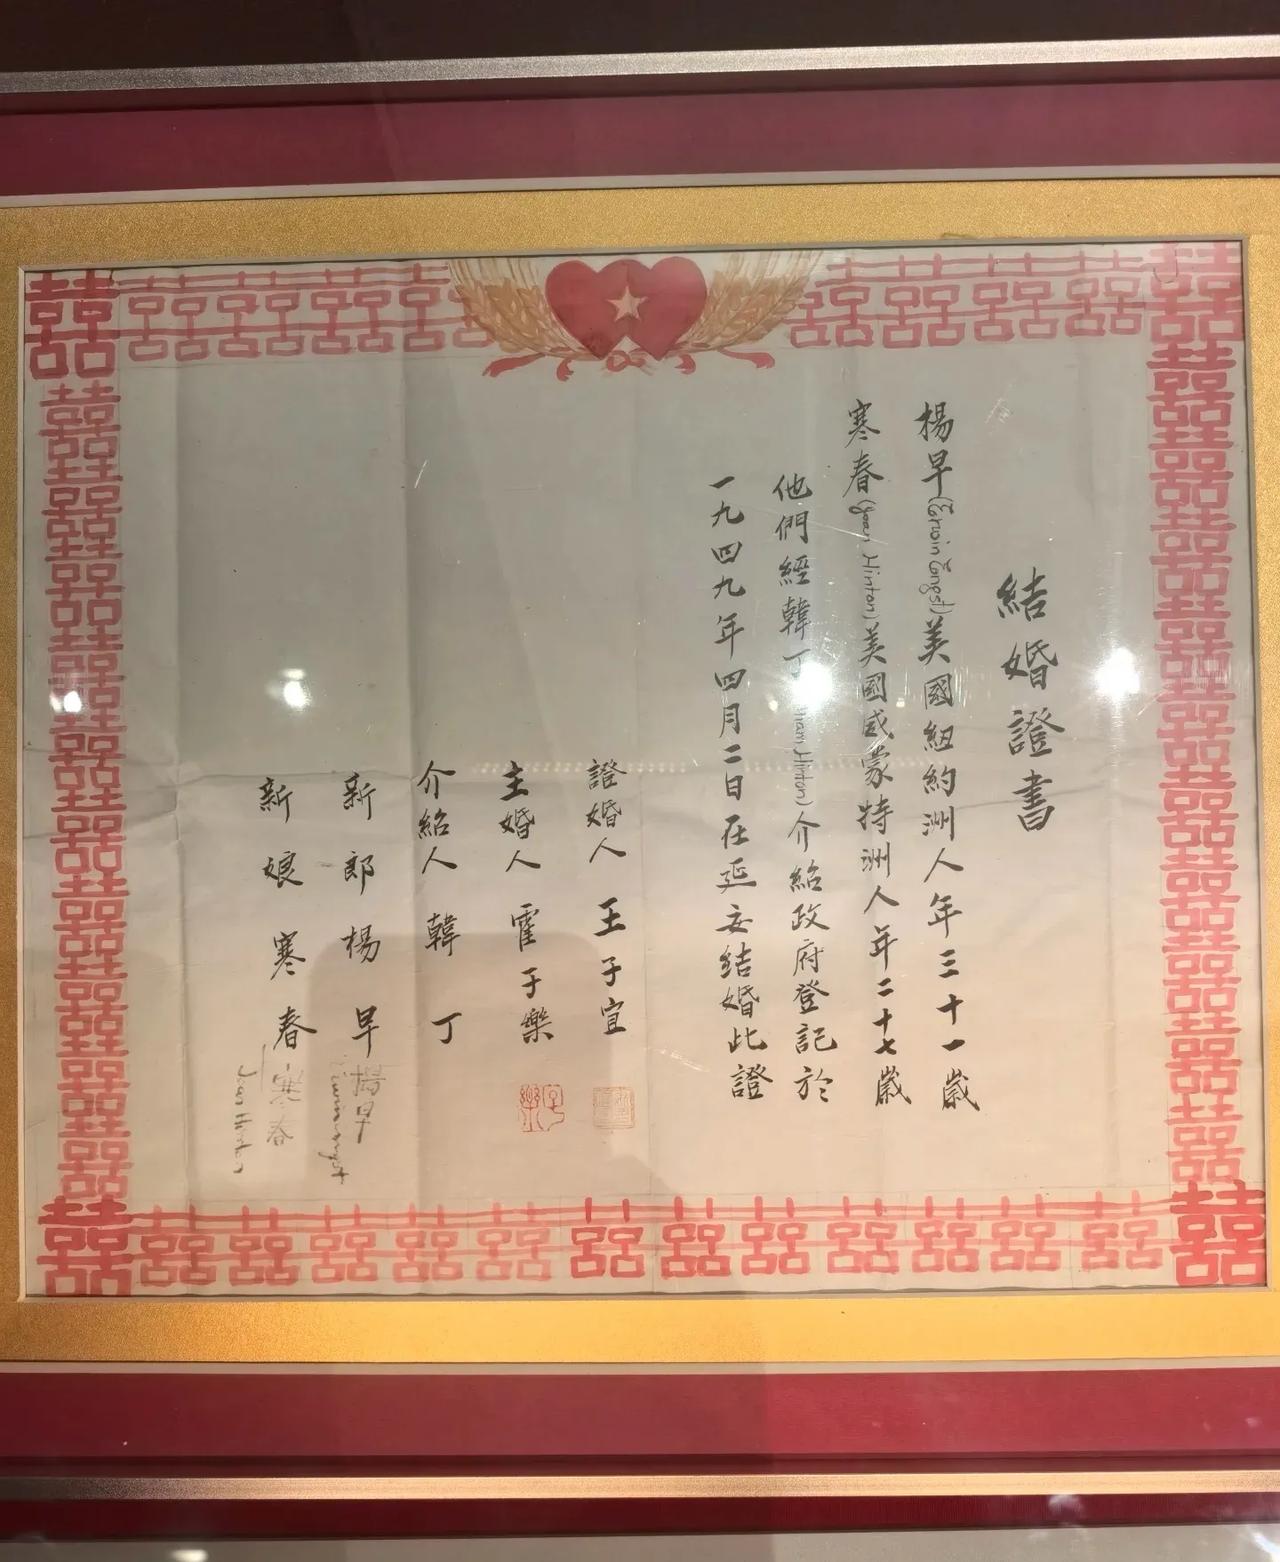 結婚證書
楊早(Erwin Engst)美國紐約洲人年三十一歲
寒春(Joan Hinton)美國威蒙特洲人年二十七歲
他們經韓丁 Hinton)介紹政府登記於
一九四九年四月二日在延安結婚此證
證婚人 王子宜
主婚人 霍子樂
子樂
介紹人 韓 丁
新郎楊早
楊早
新娘寒春
寒春
Joan Hinton